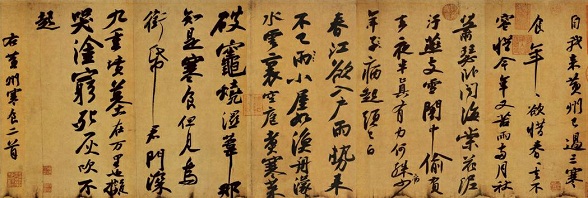 自我來黃州已過三寒
食年年欲惜春春去不
容惜今年又苦雨兩月秋
蕭瑟卧聞海棠花泥
汙燕支雪闇中偷負
去夜半真有力何殊病少
年病起頭已白
春江欲入戶雨勢來
不已雨小屋如漁舟濛濛
水雲裏空庖煮寒菜
破竈燒濕葦那
知是寒食但見烏
銜帋君門深
九重墳墓在萬里也擬
哭塗窮死灰吹不
起
右黃州寒食二首